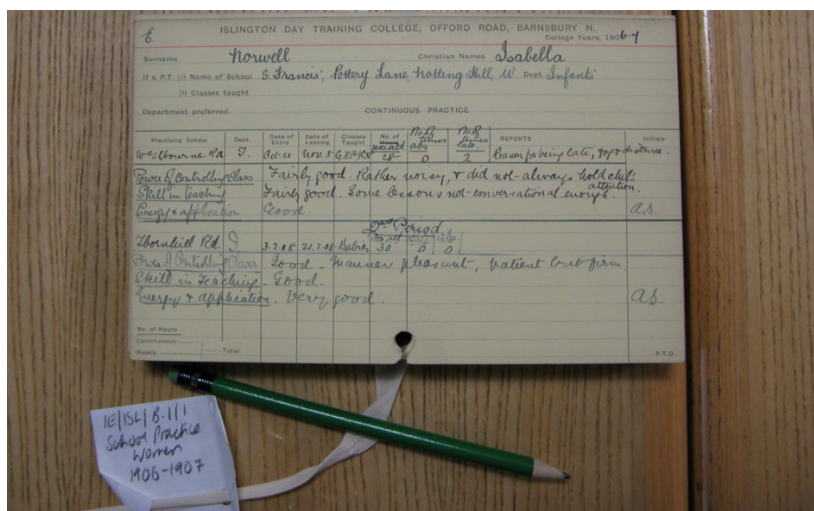 E ISLINGTON DAY TRAINING COLLEGE, OFFORD ROAD, BARNSBURY N.
College Years, 1906-7
Surname Norwell Christian Names Isabella
If a P.T. (a) Name of School S. Francis', Pottery Lane, Notting Hill, W. Dept. Infants'
(b) Classes taught
Department preferred CONTINUOUS PRACTICE
Practising School Dept. Date of Entry Date of Leaving Classes Taught No. of Hours poss. att. No. of times abs. No. of times late REPORTS Initials
Westbourne Rd. I. Oct. 21 Nov. 8 28 0 2 Reason for being late, distance.
Power of Controlling Class Fairly good. Rather noisy, & did not always hold chil's attention.
Skill in teaching Fairly good. Some lessons not conversational enough.
Energy & application Good. A.S.
2nd Period
Thornhill Rd. I. 3.2.08 21.2.08 Babies 30 0 0
Power of Controlling Class Good. Manner pleasant, patient but firm
Skill in Teaching Good.
Energy & application. Very good. A.S.
No. of Hours
Continuously
Weekly Total P.T.O.
IE/ISL/B.1/1
School Practice
Women
1906-1907